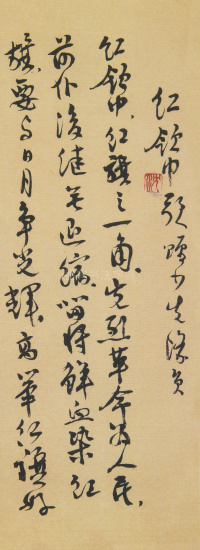 红领巾歌赠少先队员
红领巾，红旗之一角。先烈革命为人民，
前仆后继无退缩，留将鲜血染红
旗。要与日月争光辉，高举红旗好